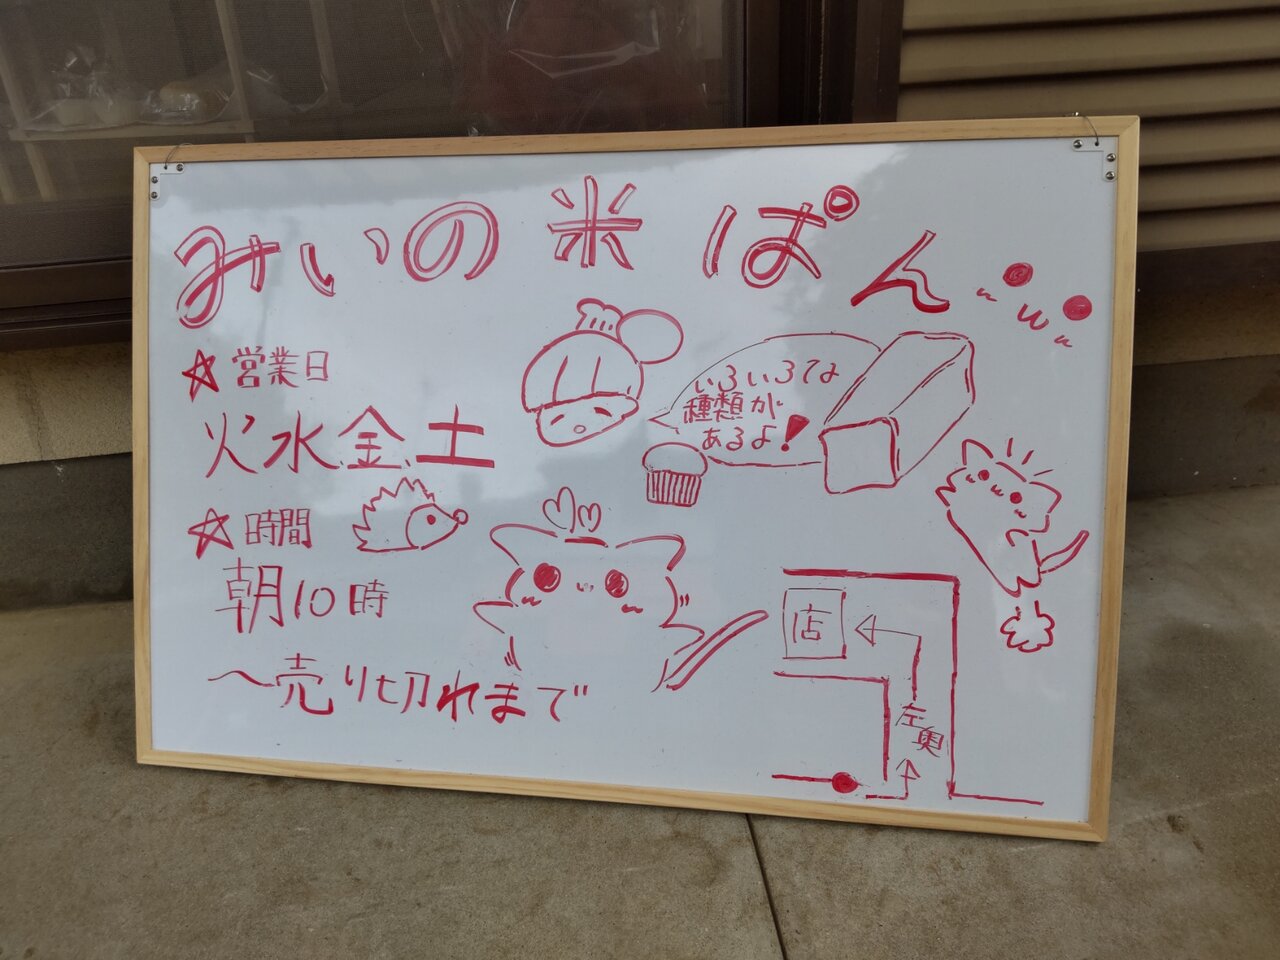 みいの米ぱん
☆営業日
火水金土
☆時間
朝10時
〜売り切れまで
いろいろな
種類が
あるよ!
店
左奥